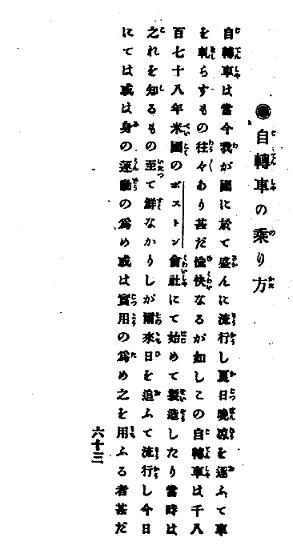 ●自轉車の乘り方
自轉車は當今我が國に於て盛んに流行し夏日晩凉を逐ふて車
を軋らすもの往々あり甚だ愉快なるが如しこの自轉車は千八
百七十八年米國のボストン會社にて始めて製造したり當時は
之れを知るもの至て鮮なかりしが爾來日を追ふて流行し今日
にては或は身の運動の爲め或は實用の爲め之を用ふる者甚だ
六十三